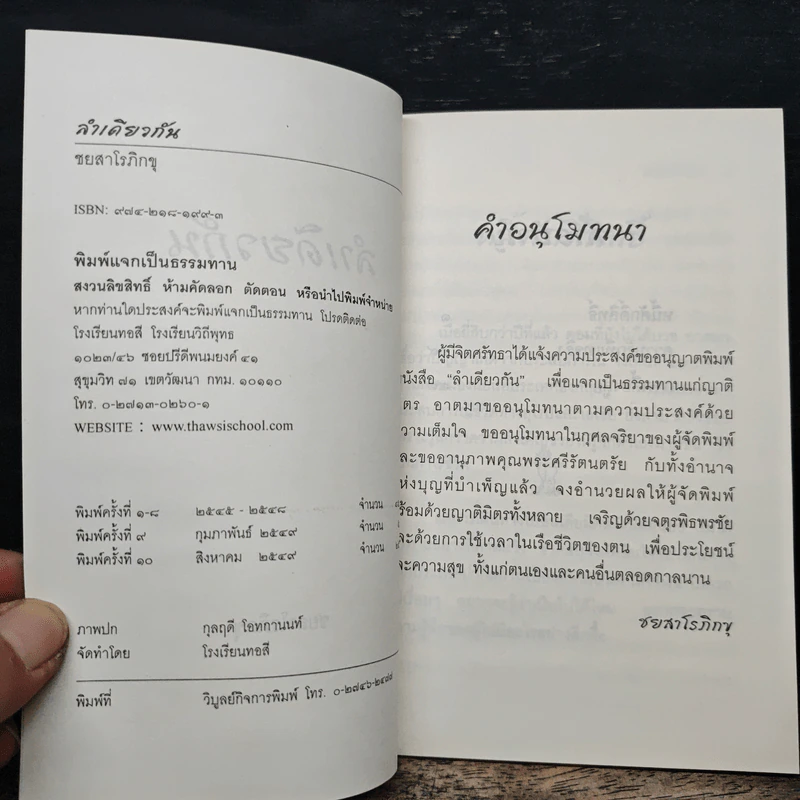 ลำเดียวกัน
ชยสาโรภิกขุ
ISBN: ๙๗๔-๒๑๘-๑๙๙-๓
พิมพ์แจกเป็นธรรมทาน
สงวนลิขสิทธิ์ ห้ามคัดลอก ตัดตอน หรือนำไปพิมพ์จำหน่าย
หากท่านใดประสงค์จะพิมพ์แจกเป็นธรรมทาน โปรดติดต่อ
โรงเรียนทอสี โรงเรียนวิถีพุทธ
๑๐๒๓/๔๖ ซอยปรีดีพนมยงค์ ๔๑
สุขุมวิท ๗๑ เขตวัฒนา กทม. ๑๐๑๑๐
โทร. ๐-๒๗๑๓-๐๒๖๐-๑
WEBSITE : www.thawsischool.com
พิมพ์ครั้งที่ ๑-๘ ๒๕๔๕ - ๒๕๔๘ จำนวน
พิมพ์ครั้งที่ ๙ กุมภาพันธ์ ๒๕๔๙ จำนวน
พิมพ์ครั้งที่ ๑๐ สิงหาคม ๒๕๔๙ จำนวน
ภาพปก กุลฤดี โอทกานนท์
จัดทำโดย โรงเรียนทอสี
พิมพ์ที่ วิบูลย์กิจการพิมพ์ โทร. ๐-๒๗๔๖-๒๔๘๘
คำอนุโมทนา
ผู้มีจิตศรัทธาได้แจ้งความประสงค์ขออนุญาตพิมพ์
นังสือ “ลำเดียวกัน” เพื่อแจกเป็นธรรมทานแก่ญาติ
ตร อาตมาขออนุโมทนาตามความประสงค์ด้วย
วามเต็มใจ ขออนุโมทนาในกุศลจริยาของผู้จัดพิมพ์
ละขออานุภาพคุณพระศรีรัตนตรัย กับทั้งอำนาจ
ห่งบุญที่บำเพ็ญแล้ว จงอำนวยผลให้ผู้จัดพิมพ์
ร้อมด้วยญาติมิตรทั้งหลาย เจริญด้วยจตุรพิธพรชัย
ละด้วยการใช้เวลาในเรือชีวิตของตน เพื่อประโยชน์
ละความสุข ทั้งแก่ตนเองและคนอื่นตลอดกาลนาน
ชยสาโรภิกขุ